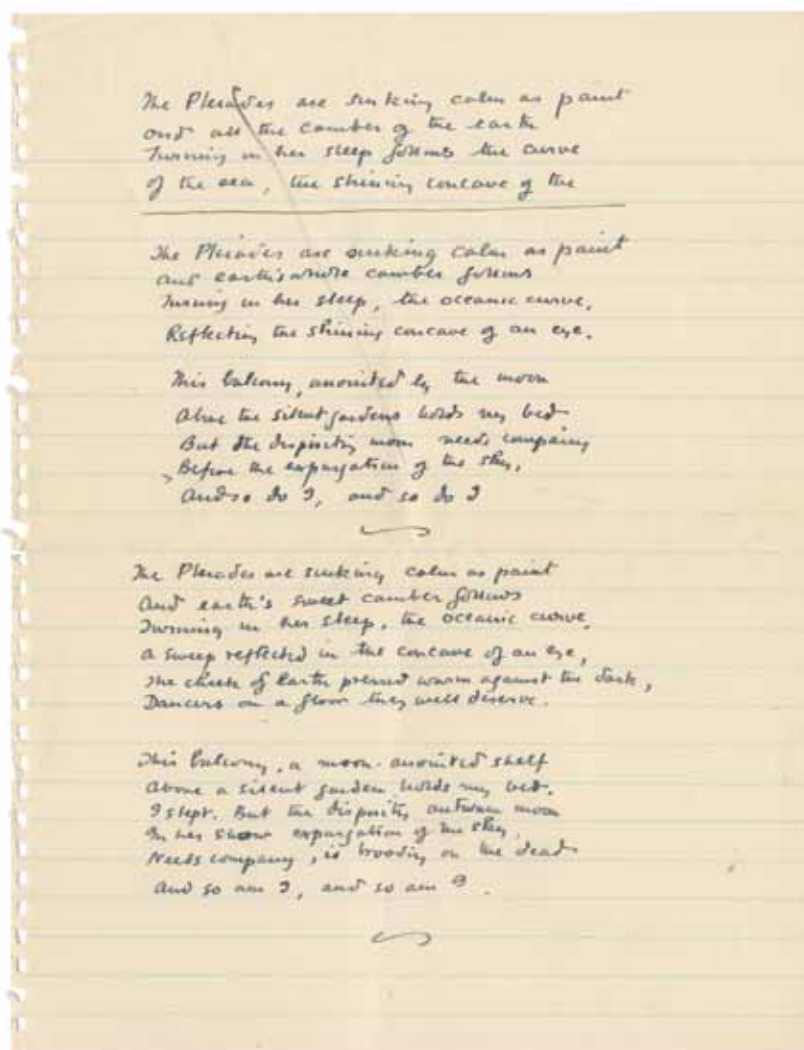 The Pleiades are sinking calm as paint
and all the camber of the earth
Turning in her sleep follows the curve
of the sea, the shining concave of the
The Pleiades are sinking calm as paint
and earth's whole camber follows
Turning in her sleep, the oceanic curve,
Reflecting the shining concave of an eye.
This balcony, anointed by the moon
Above the silent gardens holds my bed
But the dispiriting moon needs company
Before the expurgation of the sky,
And so do I, and so do I
The Pleiades are sinking calm as paint
And earth's sweet camber follows
Turning in her sleep, the oceanic curve,
A sweep reflected in the concave of an eye,
The cheek of Earth pressed warm against the dark,
Dancers on a floor they well deserve.
This balcony, a moon-anointed shelf
Above a silent garden holds my bed.
I slept. But the dispiriting autumn moon
In her slow expurgation of the sky
Needs company, is brooding on the dead
And so am I, and so am I.